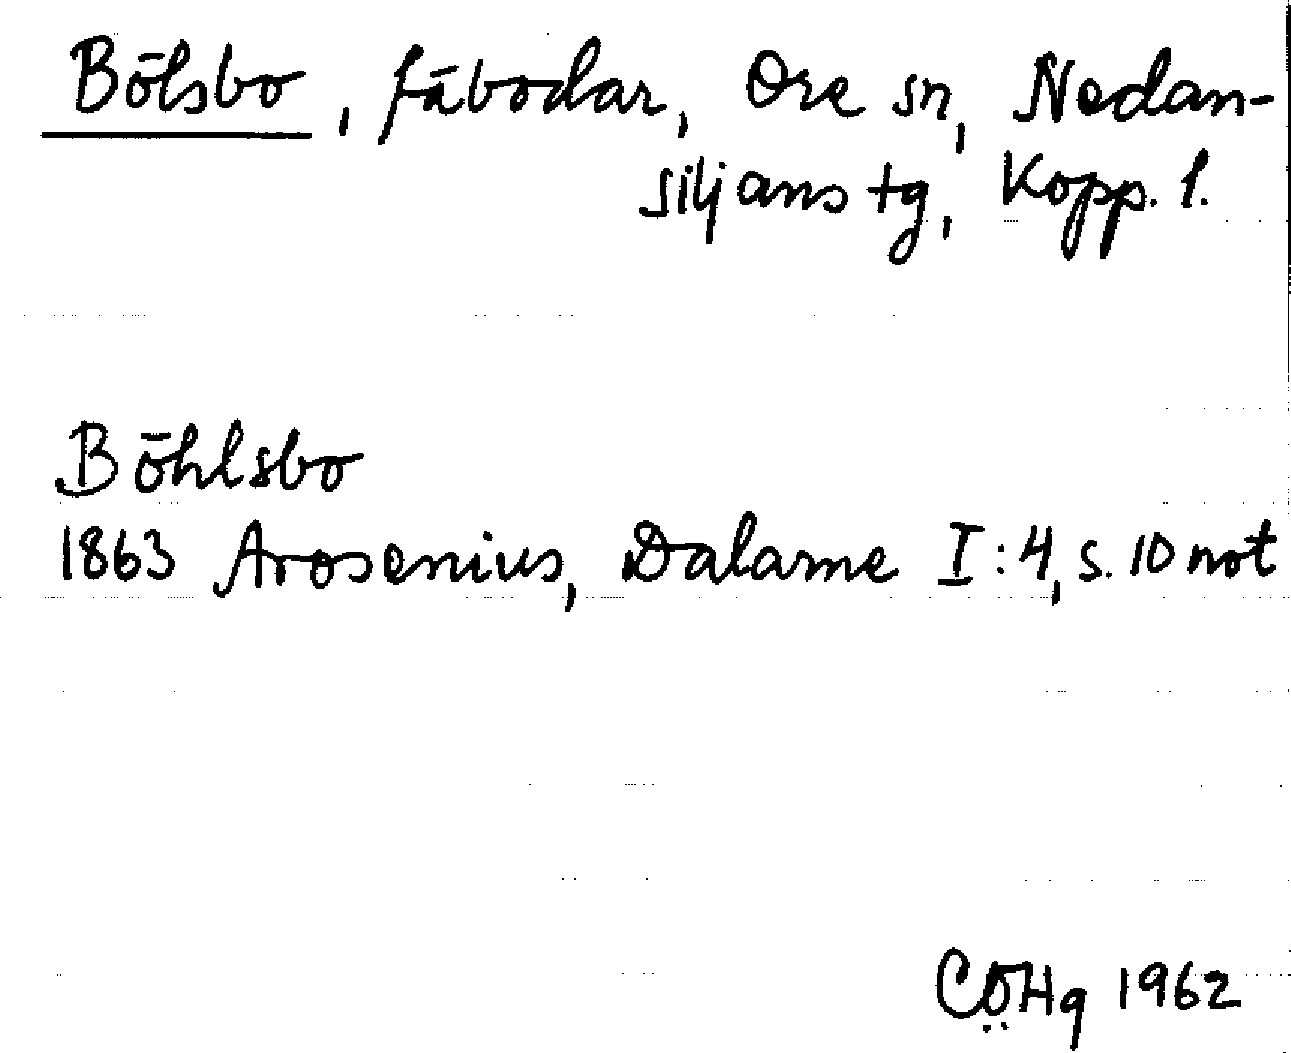 Bölsbo, fäbodar, Ore sn, Nedan-
siljans tg, Kopp. l.
Böhlsbo
1863 Arosenius, Dalarne I:4, s. 10 not
CÖHg 1962